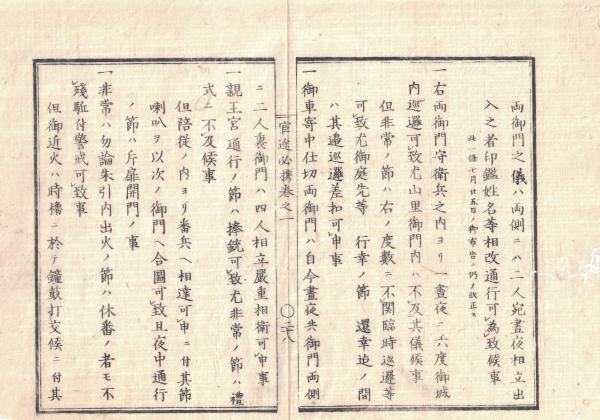 両御門之儀ハ両側ニハ二人宛晝夜相立出
入之者印鑑姓名等相改通行可為致候事
此一條七月廿五日ノ御布告ニ仍テ改正ス
一右両御門守衛兵之内ヨリ一晝夜ニ六度御城
内巡邏可致尤山里御門内ハ不及其儀候事
但非常ノ節ハ右ノ度數ニ不関臨時巡邏等
可致尤御庭先等 行幸ノ節 還幸迄ノ間
ハ其邉巡邏差扣可申事
一御車寄中仕切両御門ハ自今晝夜共御門両側
官途必携巻之一
〇二十八
ニ二人裏御門ハ四人相立嚴重相衛可申事
一親王宮通行ノ節ハ捧銃可致尤非常ノ節ハ禮
式ニ不及候事
但陪從ノ内ヨリ番兵ヘ相達可申ニ付其節
喇叭ヲ以次ノ御門ヘ合圖可致且夜中通行
ノ節ハ斤扉開門ノ事
一非常ハ勿論朱引内出火ノ節ハ休番ノ者モ不
殘駈付警戒可致事
但御近火ハ時櫓ニ於テ鐘鼓打交候ニ付其